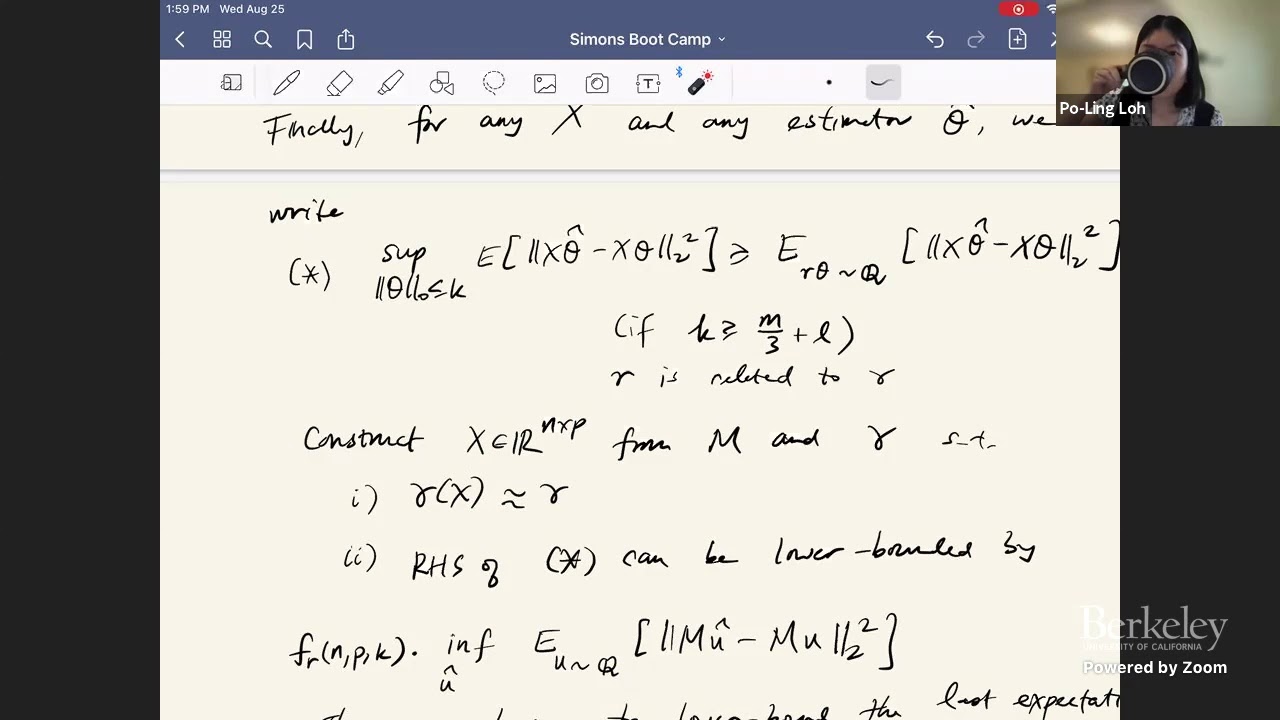 1:59 PM Wed Aug 25
Simons Boot Camp
Po-Ling Loh
Finally, for any X and any estimator θ̂, we
write
(*) sup E[||Xθ̂ - Xθ||₂²] ≥ E [||Xθ̂ - Xθ||₂²]
||θ||₀≤k rθ ~ Q
(if k ≥ m/3 + l)
r is related to γ
Construct X ∈ ℝⁿˣᵖ from M and γ s.t.
i) γ(X) ≈ γ
ii) RHS of (*) can be lower-bounded by
fᵣ(n,p,k). inf E [||Mû - Mu||₂²]
û u~Q
to lower-bound the last expectati
Berkeley
UNIVERSITY OF CALIFORNIA
Powered by Zoom